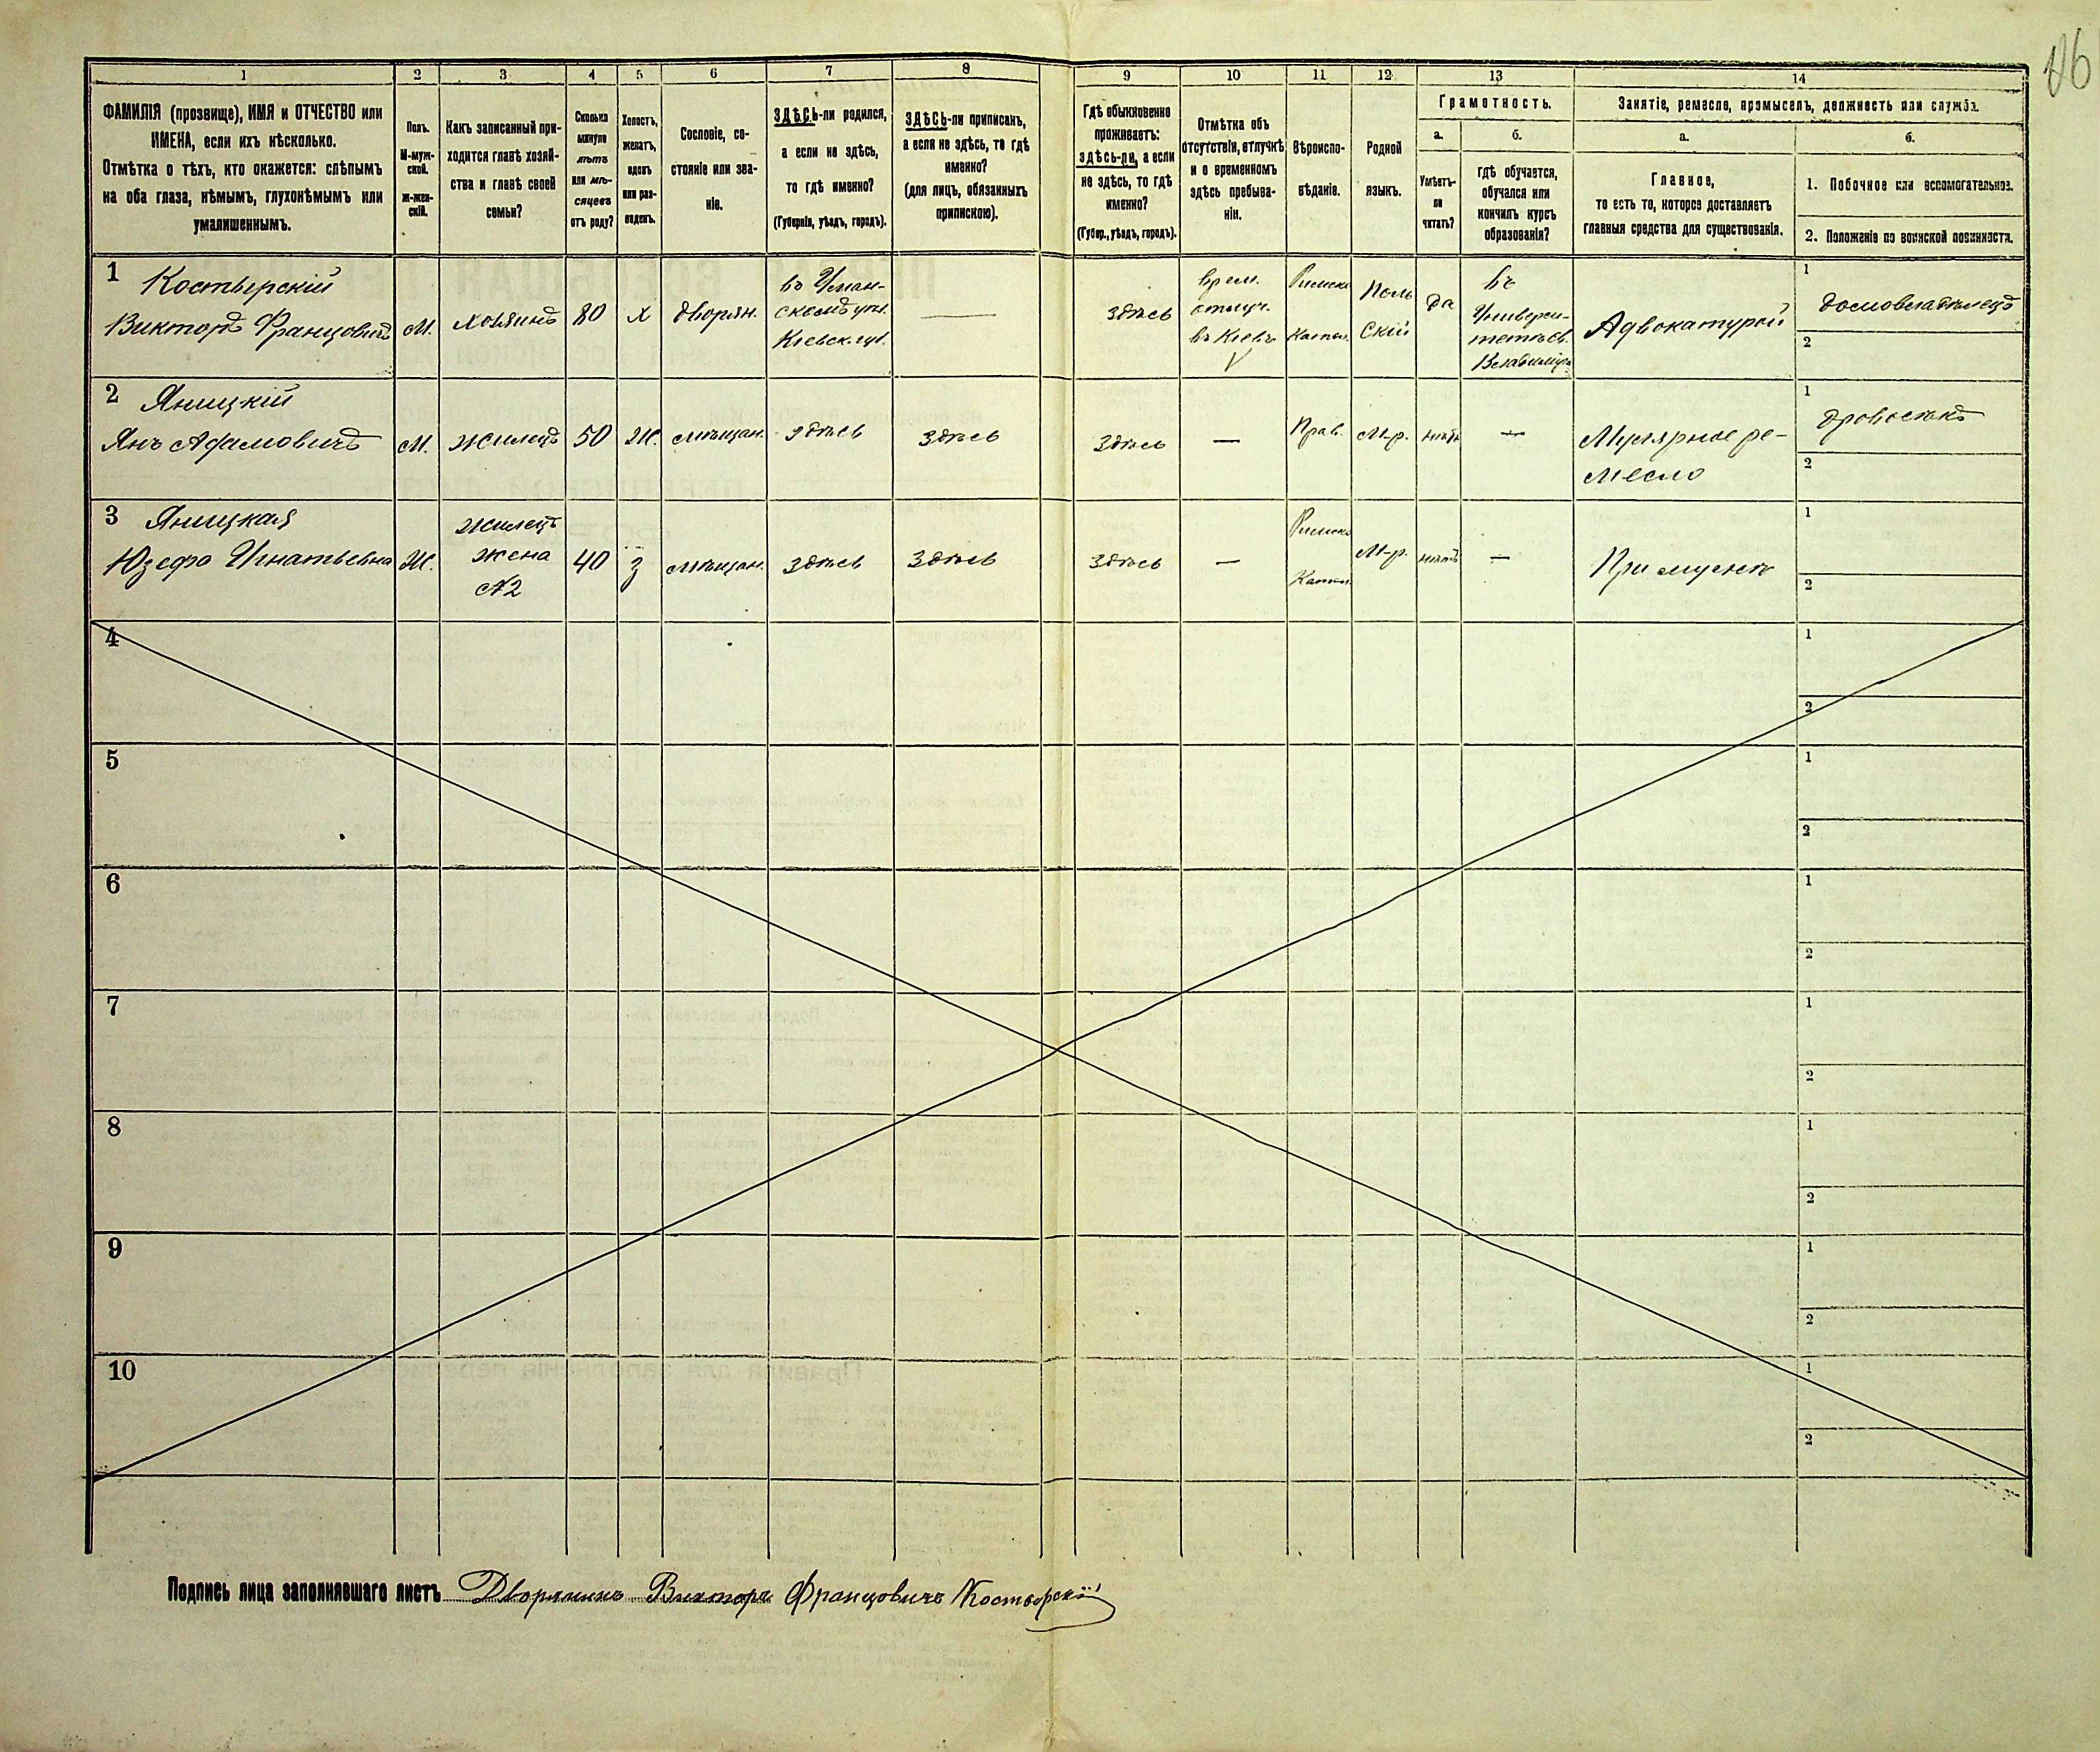 126
1 2 3 4 5 6 7 8 9 10 11 12 13 14
ФАМИЛІЯ (прозвище), ИМЯ и ОТЧЕСТВО или
ИМЕНА, если ихъ нѣсколько.
Отмѣтка о тѣхъ, кто окажется: слѣпымъ
на оба глаза, нѣмымъ, глухонѣмымъ или
умалишеннымъ.
Полъ.
М-муж-
ской.
Ж-жен-
скій.
Какъ записанный при-
ходится главѣ хозяй-
ства и главѣ своей
семьи?
Сколько
минуло
лѣтъ
или мѣ-
сяцевъ
отъ роду?
Холостъ,
женатъ,
вдовъ
или раз-
веденъ.
Сословіе, со-
стояніе или зва-
ніе.
ЗДѢСЬ-ли родился,
а если не здѣсь,
то гдѣ именно?
(Губернія, уѣздъ, городъ).
ЗДѢСЬ-ли приписанъ,
а если не здѣсь, то гдѣ
именно?
(для лицъ, обязанныхъ
припискою).
Гдѣ обыкновенно
проживаетъ:
здѣсь-ли, а если
не здѣсь, то гдѣ
именно?
(Губер., уѣздъ, городъ).
Отмѣтка объ
отсутствіи, отлучкѣ
и о временномъ
здѣсь пребыва-
ніи.
Вѣроиспо-
вѣданіе.
Родной
языкъ.
Грамотность.
а.
Умѣетъ-
ли
читать?
б.
гдѣ обучается,
обучался или
кончилъ курсъ
образованія?
Занятіе, ремесло, промыселъ, должность или служба.
а.
Главное,
то есть то, которое доставляетъ
главныя средства для существованія.
б.
1. Побочное или вспомогательное.
2. Положеніе по воинской повинности.
1 Костырскій
Викторъ Францовичъ
М.
хозяинъ
80
х
дворян.
въ Уман-
скомъ уѣз.
Кіевск. губ.
—
здѣсь
врем.
отлуч.
въ Кіевъ
Римско
Катол.
Поль
скій
да
въ
Универси-
тетѣ св.
Владиміра
Адвокатурой
1 домовладѣлецъ
2
2 Яницкій
Янъ Адамовичъ
М.
жилецъ
50
Ж.
мѣщан.
здѣсь
здѣсь
здѣсь
—
Прав.
М-р.
нѣтъ
—
Мулярное ре-
месло
1 дровосѣкъ
2
3 Яницкая
Юзефа Игнатьевна
Ж.
жилецъ
жена
№2
40
з
мѣщан.
здѣсь
здѣсь
здѣсь
—
Римско
Катол.
М-р.
нѣтъ
—
При мужѣ
1
2
4
1
2
5
1
2
6
1
2
7
1
2
8
1
2
9
1
2
10
1
2
Подпись лица заполнявшаго листъ Дворянинъ Викторъ Францовичъ Костырскій